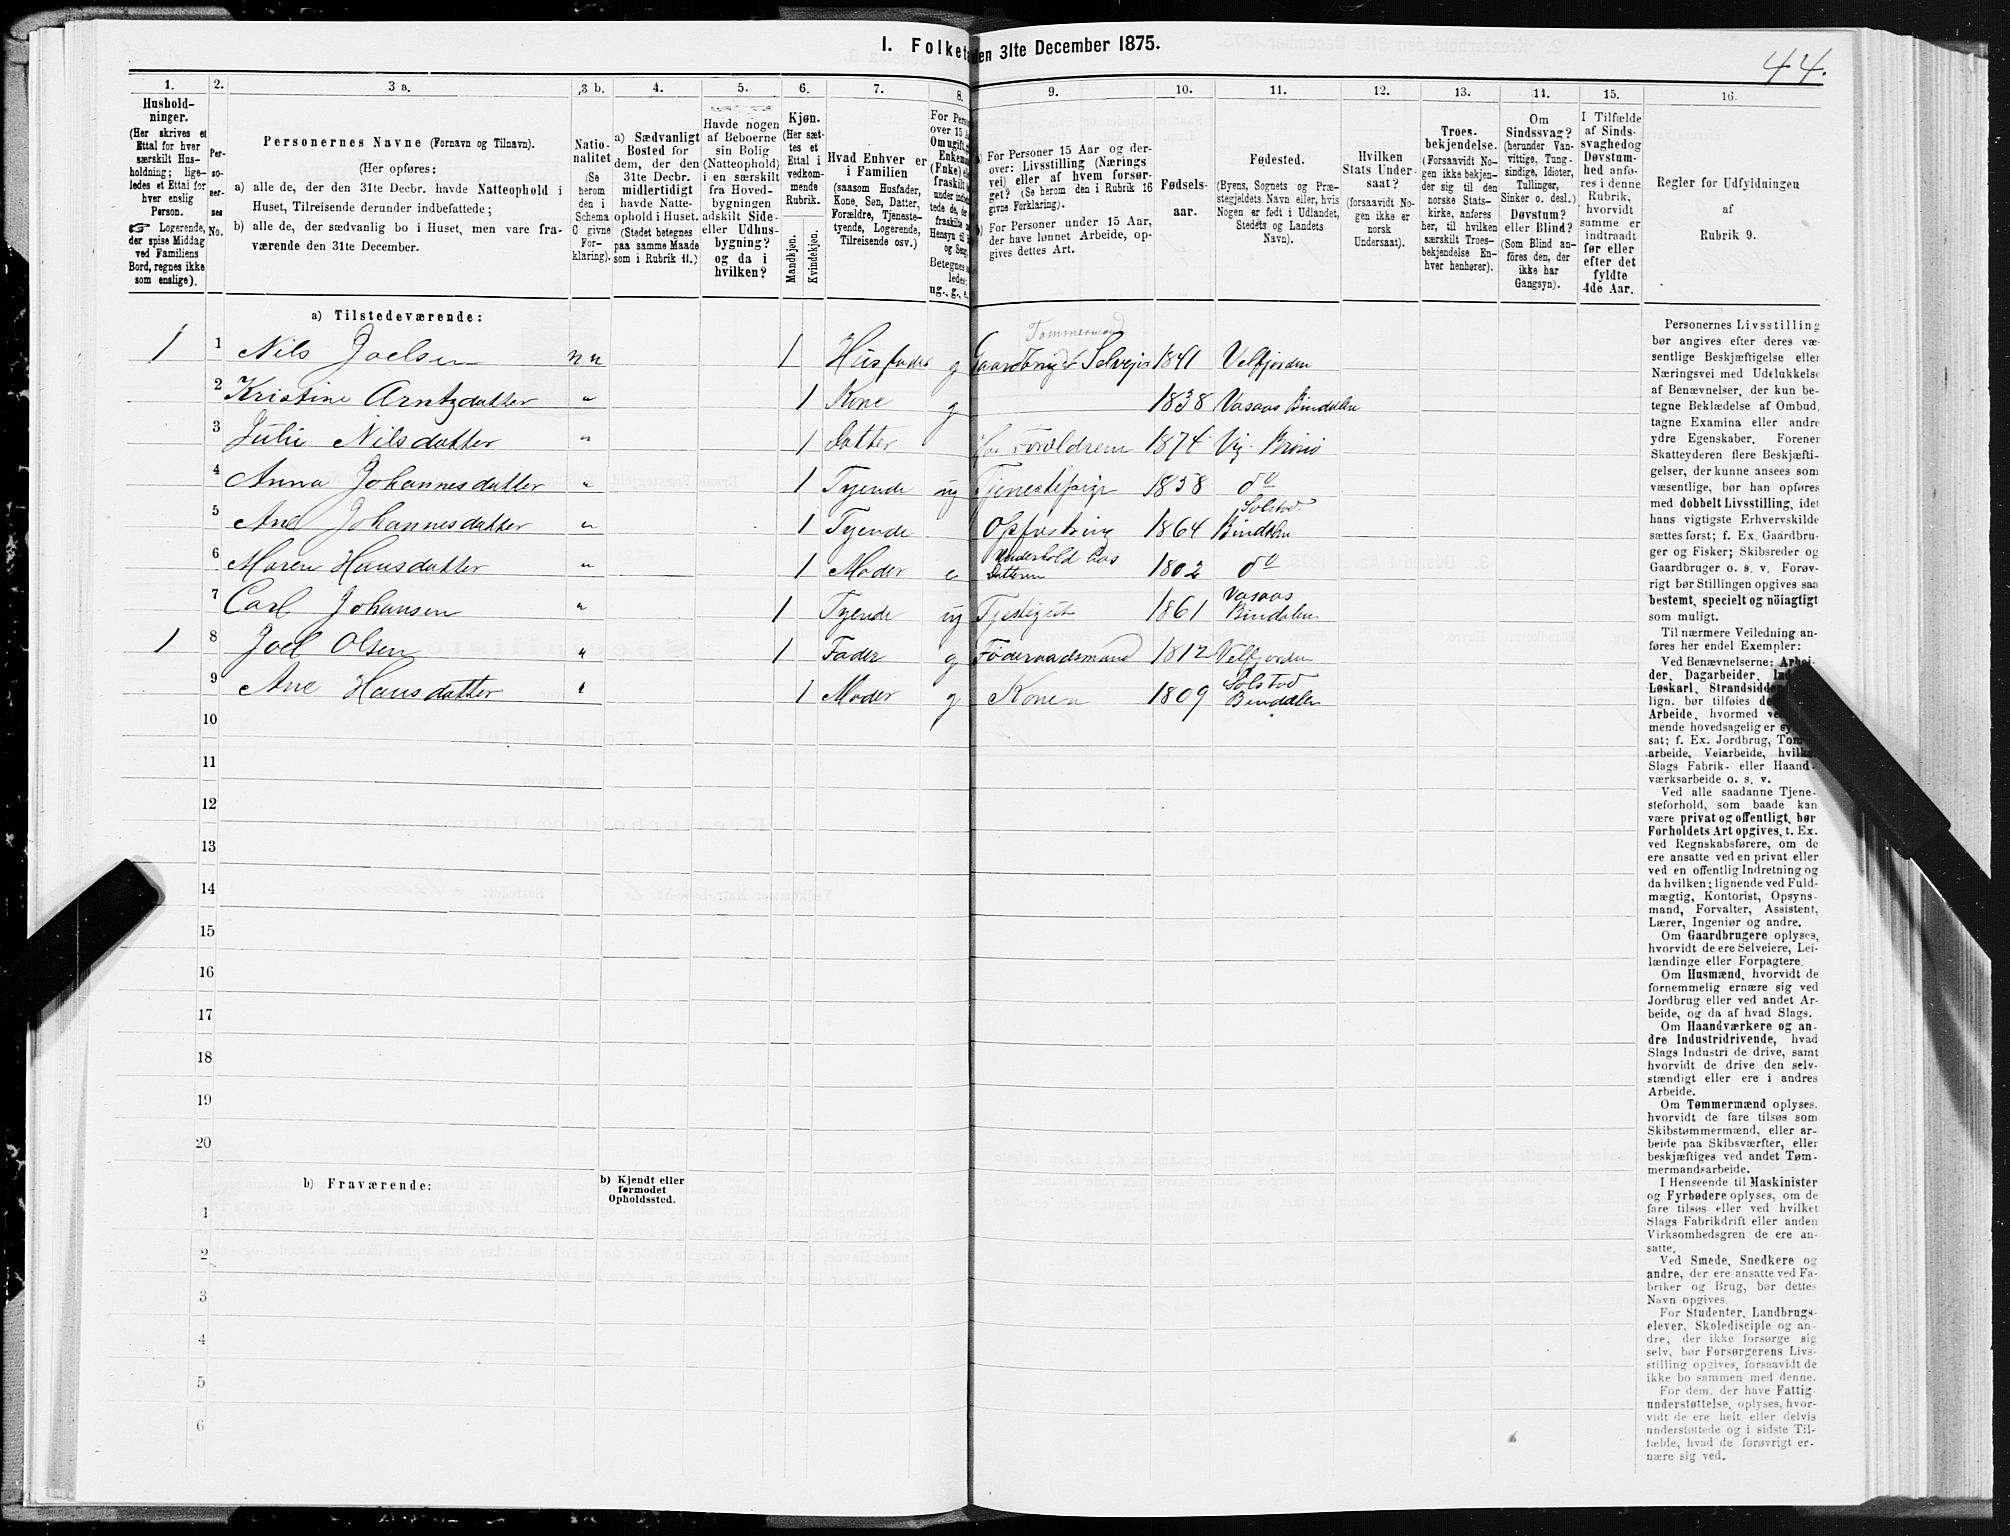 I. Folket
den 31te December 1875.
44.
1.
Hushold-
ninger.
(Her skrives et
Ettal for hver
særskilt Hus-
holdning; lige-
ledes et Ettal for
hver enslig
Person.
Logerende,
der spise Middag
ved Familiens
Bord, regnes ikke
som enslige).
2.
Per-
so-
ner-
nes
No.
3 a.
Personernes Navne (Fornavn og Tilnavn).
(Her opføres:
a) alle de, der den 31te Decbr. havde Natteophold i
Huset, Tilreisende derunder indbefattede;
b) alle de, der sædvanlig bo i Huset, men vare fra-
værende den 31te December.
3 b.
Natio-
nalitet
(Se
herom
den i
Schema
C givne
For-
klaring).
4.
a) Sædvanligt
Bosted for
dem, der den
31te Decbr.
midlertidigt
havde Natte-
ophold i Huset.
(Stedet betegnes
paa samme Maade
som i Rubrik 11.)
5.
Havde nogen
af Beboerne
sin Bolig
(Natteophold)
i en særskilt
fra Hoved-
bygningen
adskilt Side-
eller Udhus-
bygning?
og da i
hvilken?
6.
Kjøn.
(Her sæt-
tes et
Ettal i
vedkom-
mende
Rubrik.
Mandkjøn.
Kvindekjøn.
7.
Hvad Enhver er
i Familien
(saasom Husfader,
Kone, Søn, Datter,
Forældre, Tjeneste-
tyende, Logerende,
Tilreisende osv.)
8.
For Pers
over 15 A
Om ugift, g
Enkem
(Enke) e
fraskilt
9.
a) For Personer 15 Aar og der-
over: Livsstilling (Nærings
vei) eller af hvem forsør-
get? (Se herom den i Rubrik 16
givne Forklaring).
b) For Personer under 15 Aar,
der have lønnet Arbeide, op-
gives dettes Art.
10.
Fødsels-
aar.
11.
Fødested.
(Byens, Sognets og Præ-
stegjeldets Navn eller, hvis
Nogen er født i Udlandet,
Stedets og Landets
Navn).
12.
Hvilken
Stats Under-
saat?
(forsaavidt No-
gen ikke er
norsk
Undersaat).
13.
Troes-
bekjendelse.
(Forsaavidt No-
gen ikke bekjen-
der sig til den
norske Stats-
kirke, anføres
her, til hvilken
særskilt Troes-
bekjendelse En-
hver henhører).
14.
Om
Sindssvag?
(herunder Van-
vittige, Tung-
sindige, Idioter,
Tullinger,
Sinker o. desl.)
Døvstum?
eller Blind?
(Som Blind an-
føres den, der
ikke har
Gangsyn).
15.
I Tilfælde
af Sinds-
svaghed og
Døvstum-
hed anfø-
res i denne
Rubrik,
hvorvidt
samme er
indtraadt
før eller
efter det
fyldte
4de Aar.
16.
Regler for Udfyldningen
af
Rubrik 9.
a) Tilstedeværende:
Tømmermand
1 1 Nils Joelsen nn 1 Husfader g Gaardbruger Selveier 1841 Velfjorden
2 Kristine Arntzdatter " 1 Kone g 1838 Vasaas Bindalen
3 Julie Nilsdatter " 1 Datter Hos Forældrene 1874 Vig. Brønø
4 Anna Johannesdatter " 1 Tyende ug Tjenestepige 1858 do
5 Ane Johannesdatter " 1 Tyende Opfostring 1864 Solstad Bindalen
6 Maren Hansdatter " 1 Moder e Underhold hos Datteren 1802 do
7 Carl Johansen " 1 Tyende ug Tjestegut 1861 Vasaas Bindalen
1 8 Joel Olsen " 1 Fader g Føderaadsmand 1812 Velfjorden
9 Ane Hansdatter " 1 Moder g Kone 1809 Solstad Bindalen
10
11
12
13
14
15
16
17
18
19
20
b) Fraværende:
b) Kjendt eller
formodet
Opholdssted.
1
2
3
4
5
6
Personernes Livsstilling
bør angives efter deres væ-
sentlige Beskjæftigelse eller
Næringsvei med Udelukkelse
af Benævnelser, der kun be-
tegne Beklædelse af Ombud,
tagne Examina eller andre
ydre Egenskaber. Forener
Skatteyderen flere Beskjæfti-
gelser, der kunne ansees som
væsentlige, bør han opføres
med dobbelt Livsstilling, idet
hans vigtigste Erhvervskilde
sættes først; f. Ex. Gaardbru-
ger og Fisker; Skibsreder og
Gaardbruger o. s. v. Forøv-
rigt bør Stillingen opgives saa
bestemt, specielt og nöiagtigt
som muligt.
Til nærmere Veiledning an-
føres her endel Exempler:
Ved Benævnelserne: Arbei-
der, Dagarbeider,
Løskarl, Strandsidder
lign. bør tilføies
Arbeide, hvormed
mende hovedsagelig er
sat; f. Ex. Jordbrug,
arbeide, Veiarbeide,
Slags Fabrik- eller Haand-
værksarbeide o. s. v.
Ved alle saadanne Tjene-
steforhold, som baade kan
være privat og offentligt, bør
Forholdets Art opgives, t. Ex.
ved Regnskabsførere, om de
ere ansatte ved en privat eller
ved en offentlig Indretning og
da hvilken; lignende ved Fuld-
mægtig, Kontorist, Opsyns-
mand, Forvalter, Assistent,
Lærer, Ingeniør og andre.
Om Gaardbrugere oplyses,
hvorvidt de ere Selveiere, Lei-
lændinge eller Forpagtere.
Om Husmænd, hvorvidt de
fornemmelig ernære sig ved
Jordbrug eller ved andet Ar-
beide, og da af hvad Slags.
Om Haandværkere og an-
dre Industridrivende, hvad
Slags Industri de drive, samt
hvorvidt de drive den selv-
stændigt eller ere i andres
Arbeide.
Om Tømmermænd oplyses,
hvorvidt de fare tilsøs som
Skibstømmermænd, eller ar-
beide paa Skibsværfter, eller
beskjæftiges ved andet Tøm-
mermandsarbeide.
I Henseende til Maskinister
og Fyrbødere oplyses, om de
fare tilsøs eller ved hvilket
Slags Fabrikdrift eller anden
Virksomhedsgren de ere an-
satte.
Ved Smede, Snedkere og
andre, der ere ansatte ved Fa-
briker og Brug, bør dettes
Navn opgives.
For Studenter, Landbrugs-
elever, Skoledisciple og an-
dre, der ikke forsørge sig
selv, bør Forsørgerens Livs-
stilling opgives, forsaavidt de
ikke bo sammen med denne.
For dem, der have Fattig-
understøttelse, oplyses, hvor-
vidt de ere helt eller delvis
understøttede og i sidste Til-
fælde, hvad de forøvrigt er-
nære sig ved.